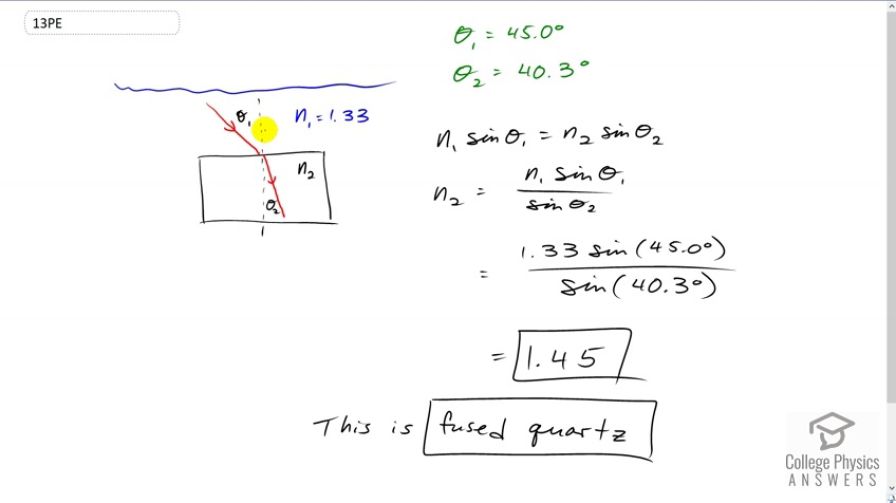 13PE
θ₁ = 45.0°
θ₂ = 40.3°
θ₁ n₁ = 1.33
n₂
θ₂
n₁ sinθ₁ = n₂ sinθ₂
n₂ = n₁ sinθ₁ / sinθ₂
= 1.33 sin(45.0°) / sin(40.3°)
= 1.45
This is fused quartz
College Physics
ANSWERS